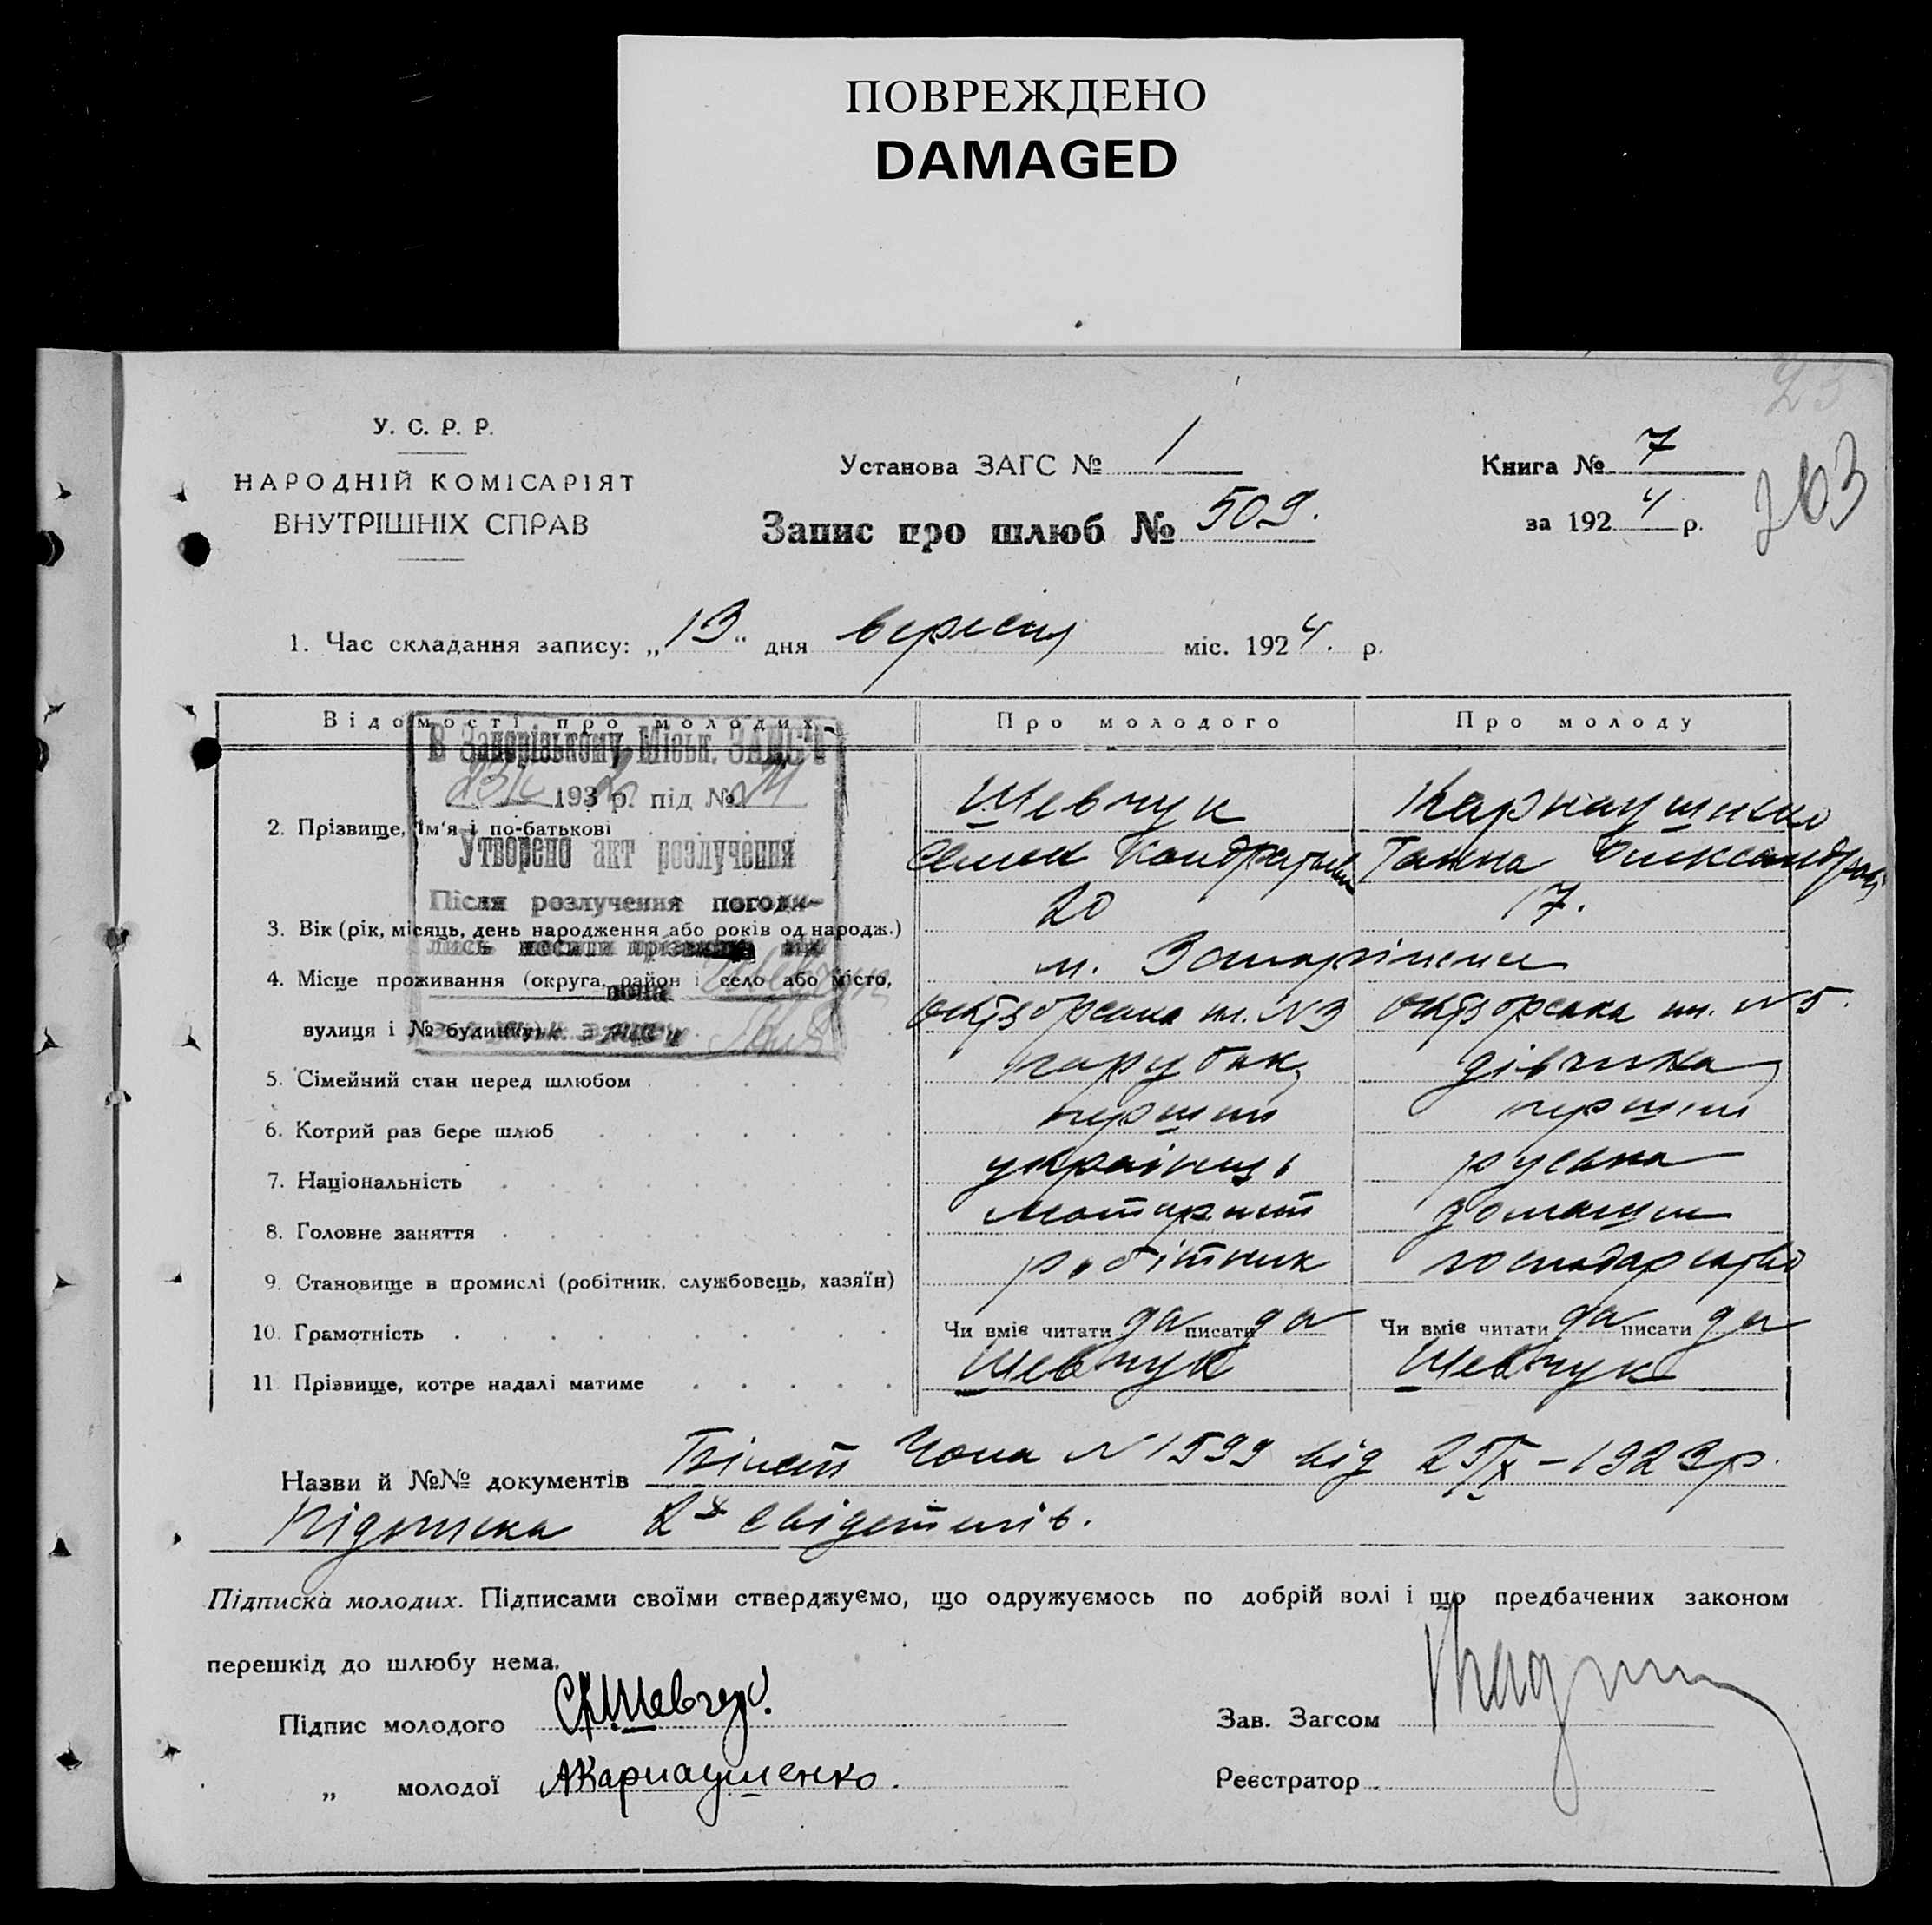 ПОВРЕЖДЕНО
DAMAGED
23
У. С. Р. Р.
НАРОДНІЙ КОМІСАРІЯТ
ВНУТРІШНІХ СПРАВ
Установа ЗАГС № 1
Запис про шлюб № 509.
Книга № 7
за 1924 р.
263
1. Час складання запису: „13" дня вересня міс. 1924. р.
Відомості про молодих
Про молодого
Про молоду
В Запорізькому Міськ. ЗАГС'і
193 р. під №
Утворено акт розлучення
Після розлучення погоди-
лись носити прізвища він
вона
2. Прізвище, ім'я і по-батькові
Шевчук
Карнаушенко
Семен Кондратьев
Ганна Олександров
3. Вік (рік, місяць, день народження або років од народж.)
20
17.
4. Місце проживання (округа, район і село або місто,
м. Запоріжжя
вулиця і № будинку)
октяорська ш. №3
октяорська ш. №5.
5. Сімейний стан перед шлюбом
парубок
дівчина
6. Котрий раз бере шлюб
перший
перший
7. Національність
українець
руська
8. Головне заняття
моторист
домашнє
9. Становище в промислі (робітник, службовець, хазяїн)
робітник
господарство
10. Грамотність
Чи вміє читати да писати да
Чи вміє читати да писати да
11 Прізвище, котре надалі матиме
Шевчук
Шевчук
Назви й №№ документів Білет Чона №1599 від 25/IX-1923р.
Підписка 2х свідетелів.
Підписка молодих. Підписами своїми стверджуємо, що одружуємось по добрій волі і що предбачених законом
перешкід до шлюбу нема.
Підпис молодого СКШевчук.
Зав. Загсом
„ молодої АКарнаушенко.
Реєстратор